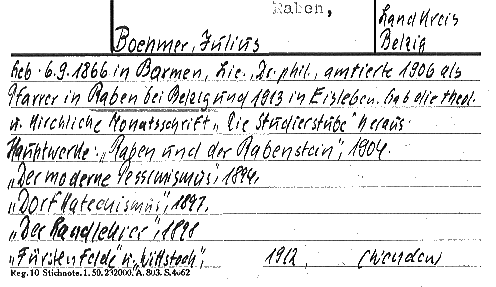 Raben,
Landkreis
Belzig
Boehmer, Julius
Geb. 6.9.1866 in Barmen, Lic., Dr. phil., amtierte 1906 als
Pfarrer in Raben bei Belzig und 1913 in Eisleben. Gab die theol.
u. Kirchliche Monatsschrift „Die Studierstube" heraus.
Hauptwerke: „Raben und der Rabenstein", 1904.
„Der moderne Pessimismus", 1894,
„Dorfkatechismus", 1897,
„Der Landlehrer", 1898
„Fürstenfelde" u. „Wittstock", 1912, (wenden)
Reg. 10 Stichnote. 1. 50. 232000. A. 803. S. 4062